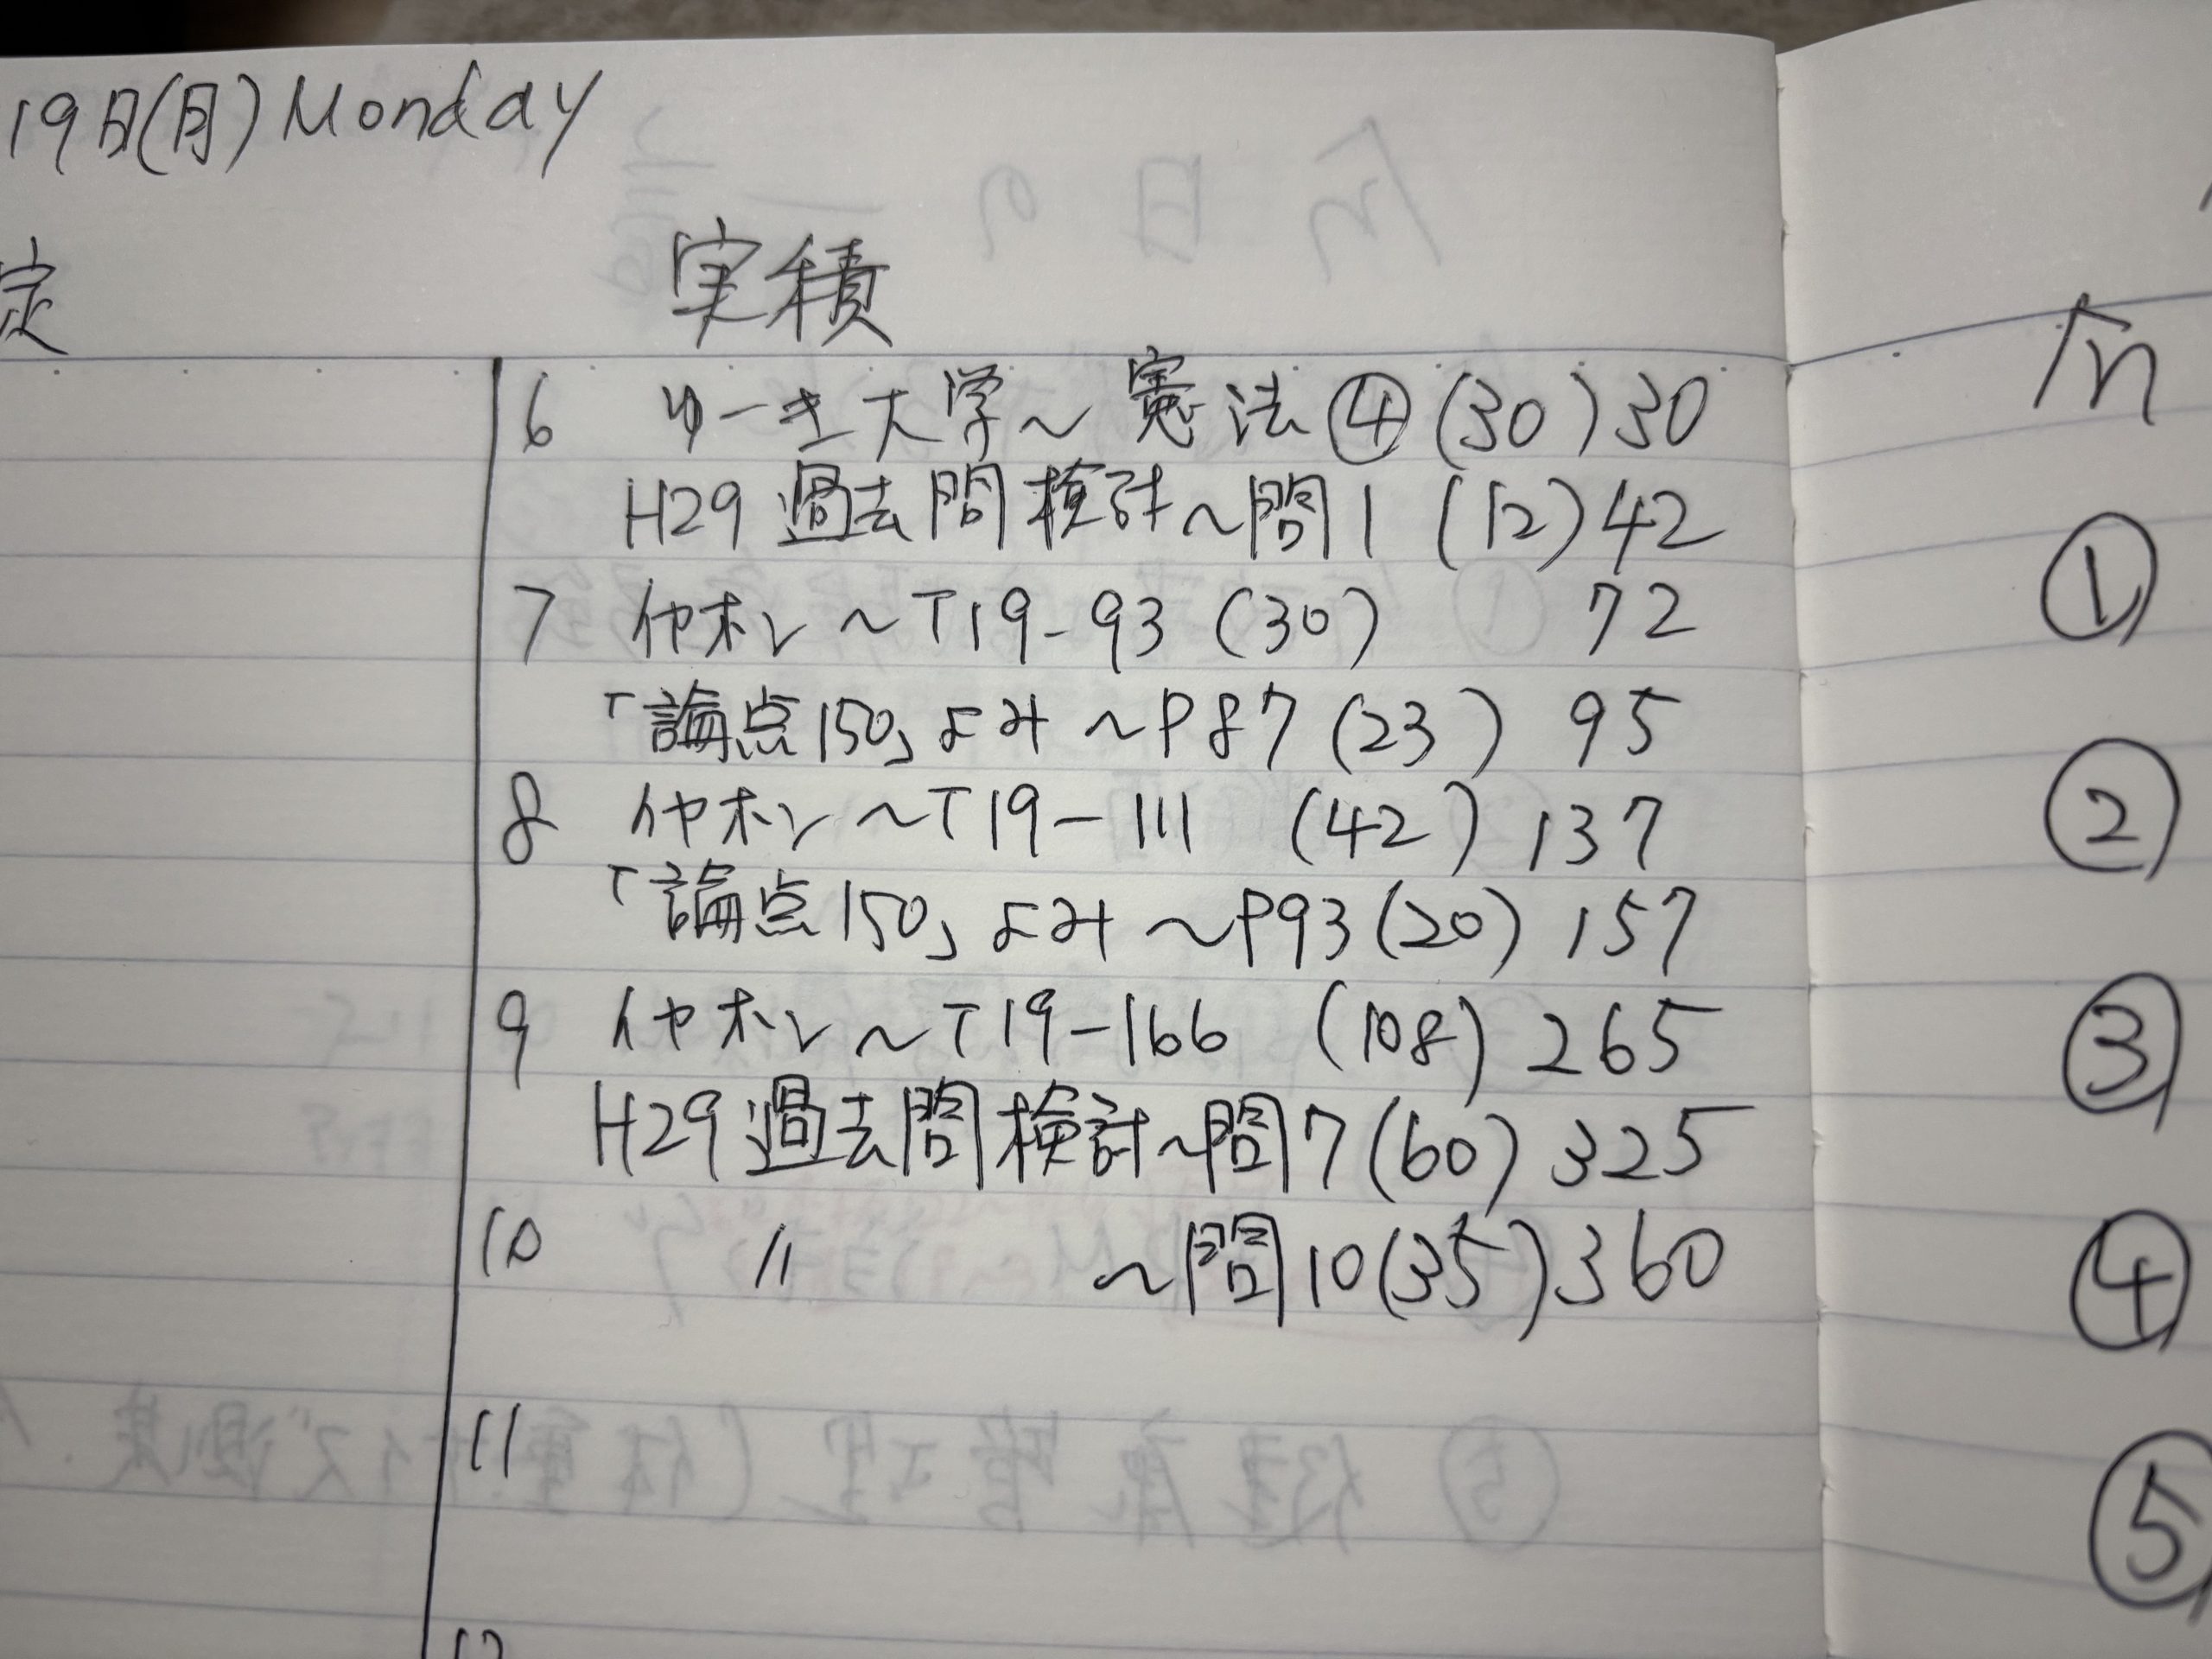 19日(月) Monday
定
実積
6 ゆーき大学～憲法④(30)30
H29過去問検討～問1 (12)42
7 イヤホン～T19-93 (30) 72
「論点150」よみ～P87 (23) 95
8 イヤホン～T19-111 (42) 137
「論点150」よみ～P93(20) 157
9 イヤホン～T19-166 (108) 265
H29過去問検討～問7(60) 325
10 〃 ～問10(35)360
11
12
①
②
③
④
⑤